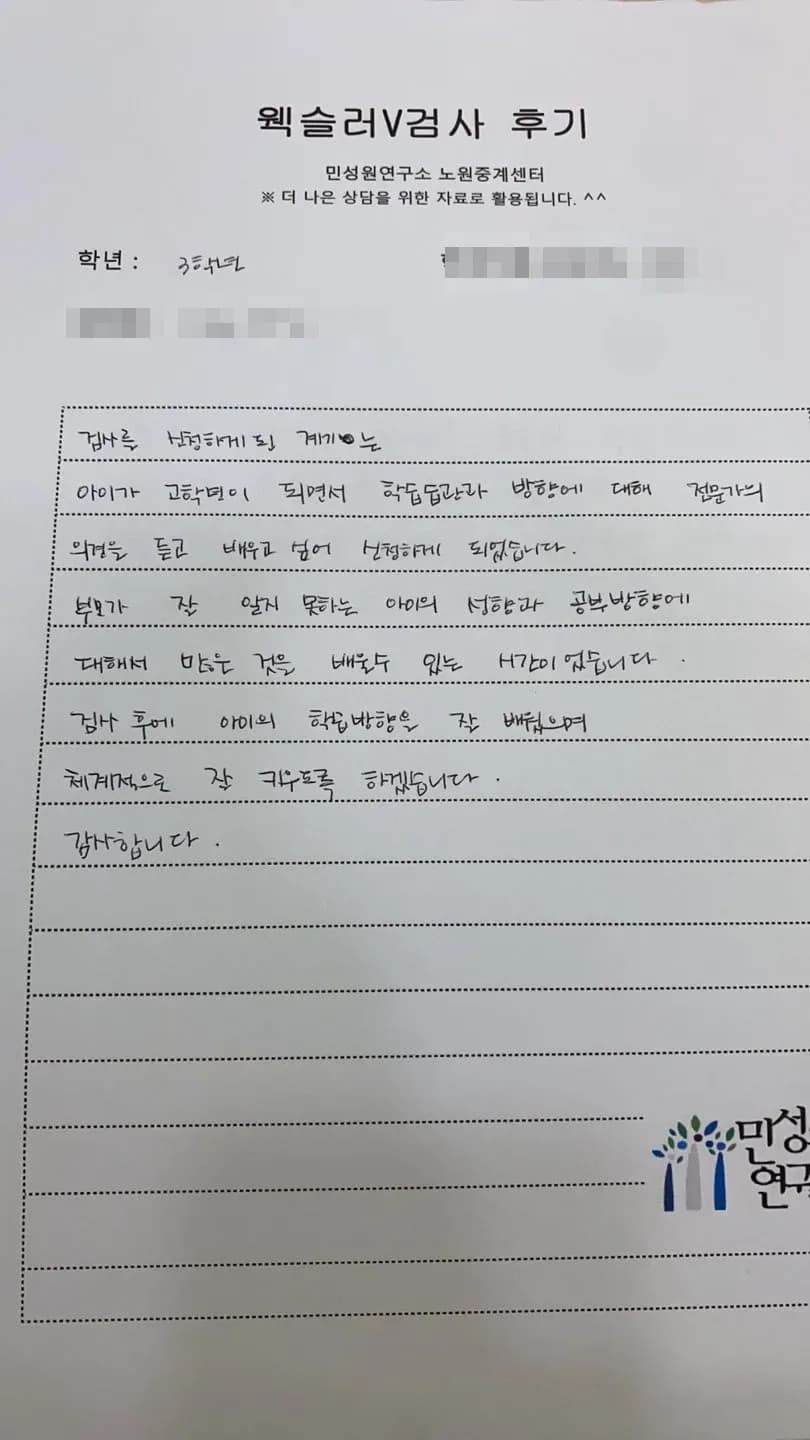 웩슬러V검사 후기
민성원연구소 노원중계센터
※ 더 나은 상담을 위한 자료로 활용됩니다. ^^
학년 : 3학년
검사를 신청하게 된 계기는
아이가 고학년이 되면서 학습습관과 방향에 대해 전문가의
의견을 듣고 배우고 싶어 신청하게 되었습니다.
부모가 잘 알지 못하는 아이의 성향과 공부방향에
대해서 많은 것을 배울수 있는 시간이었습니다.
검사 후에 아이의 학습방향을 잘 배웠으며
체계적으로 잘 키우도록 하겠습니다.
감사합니다.
민성
연구